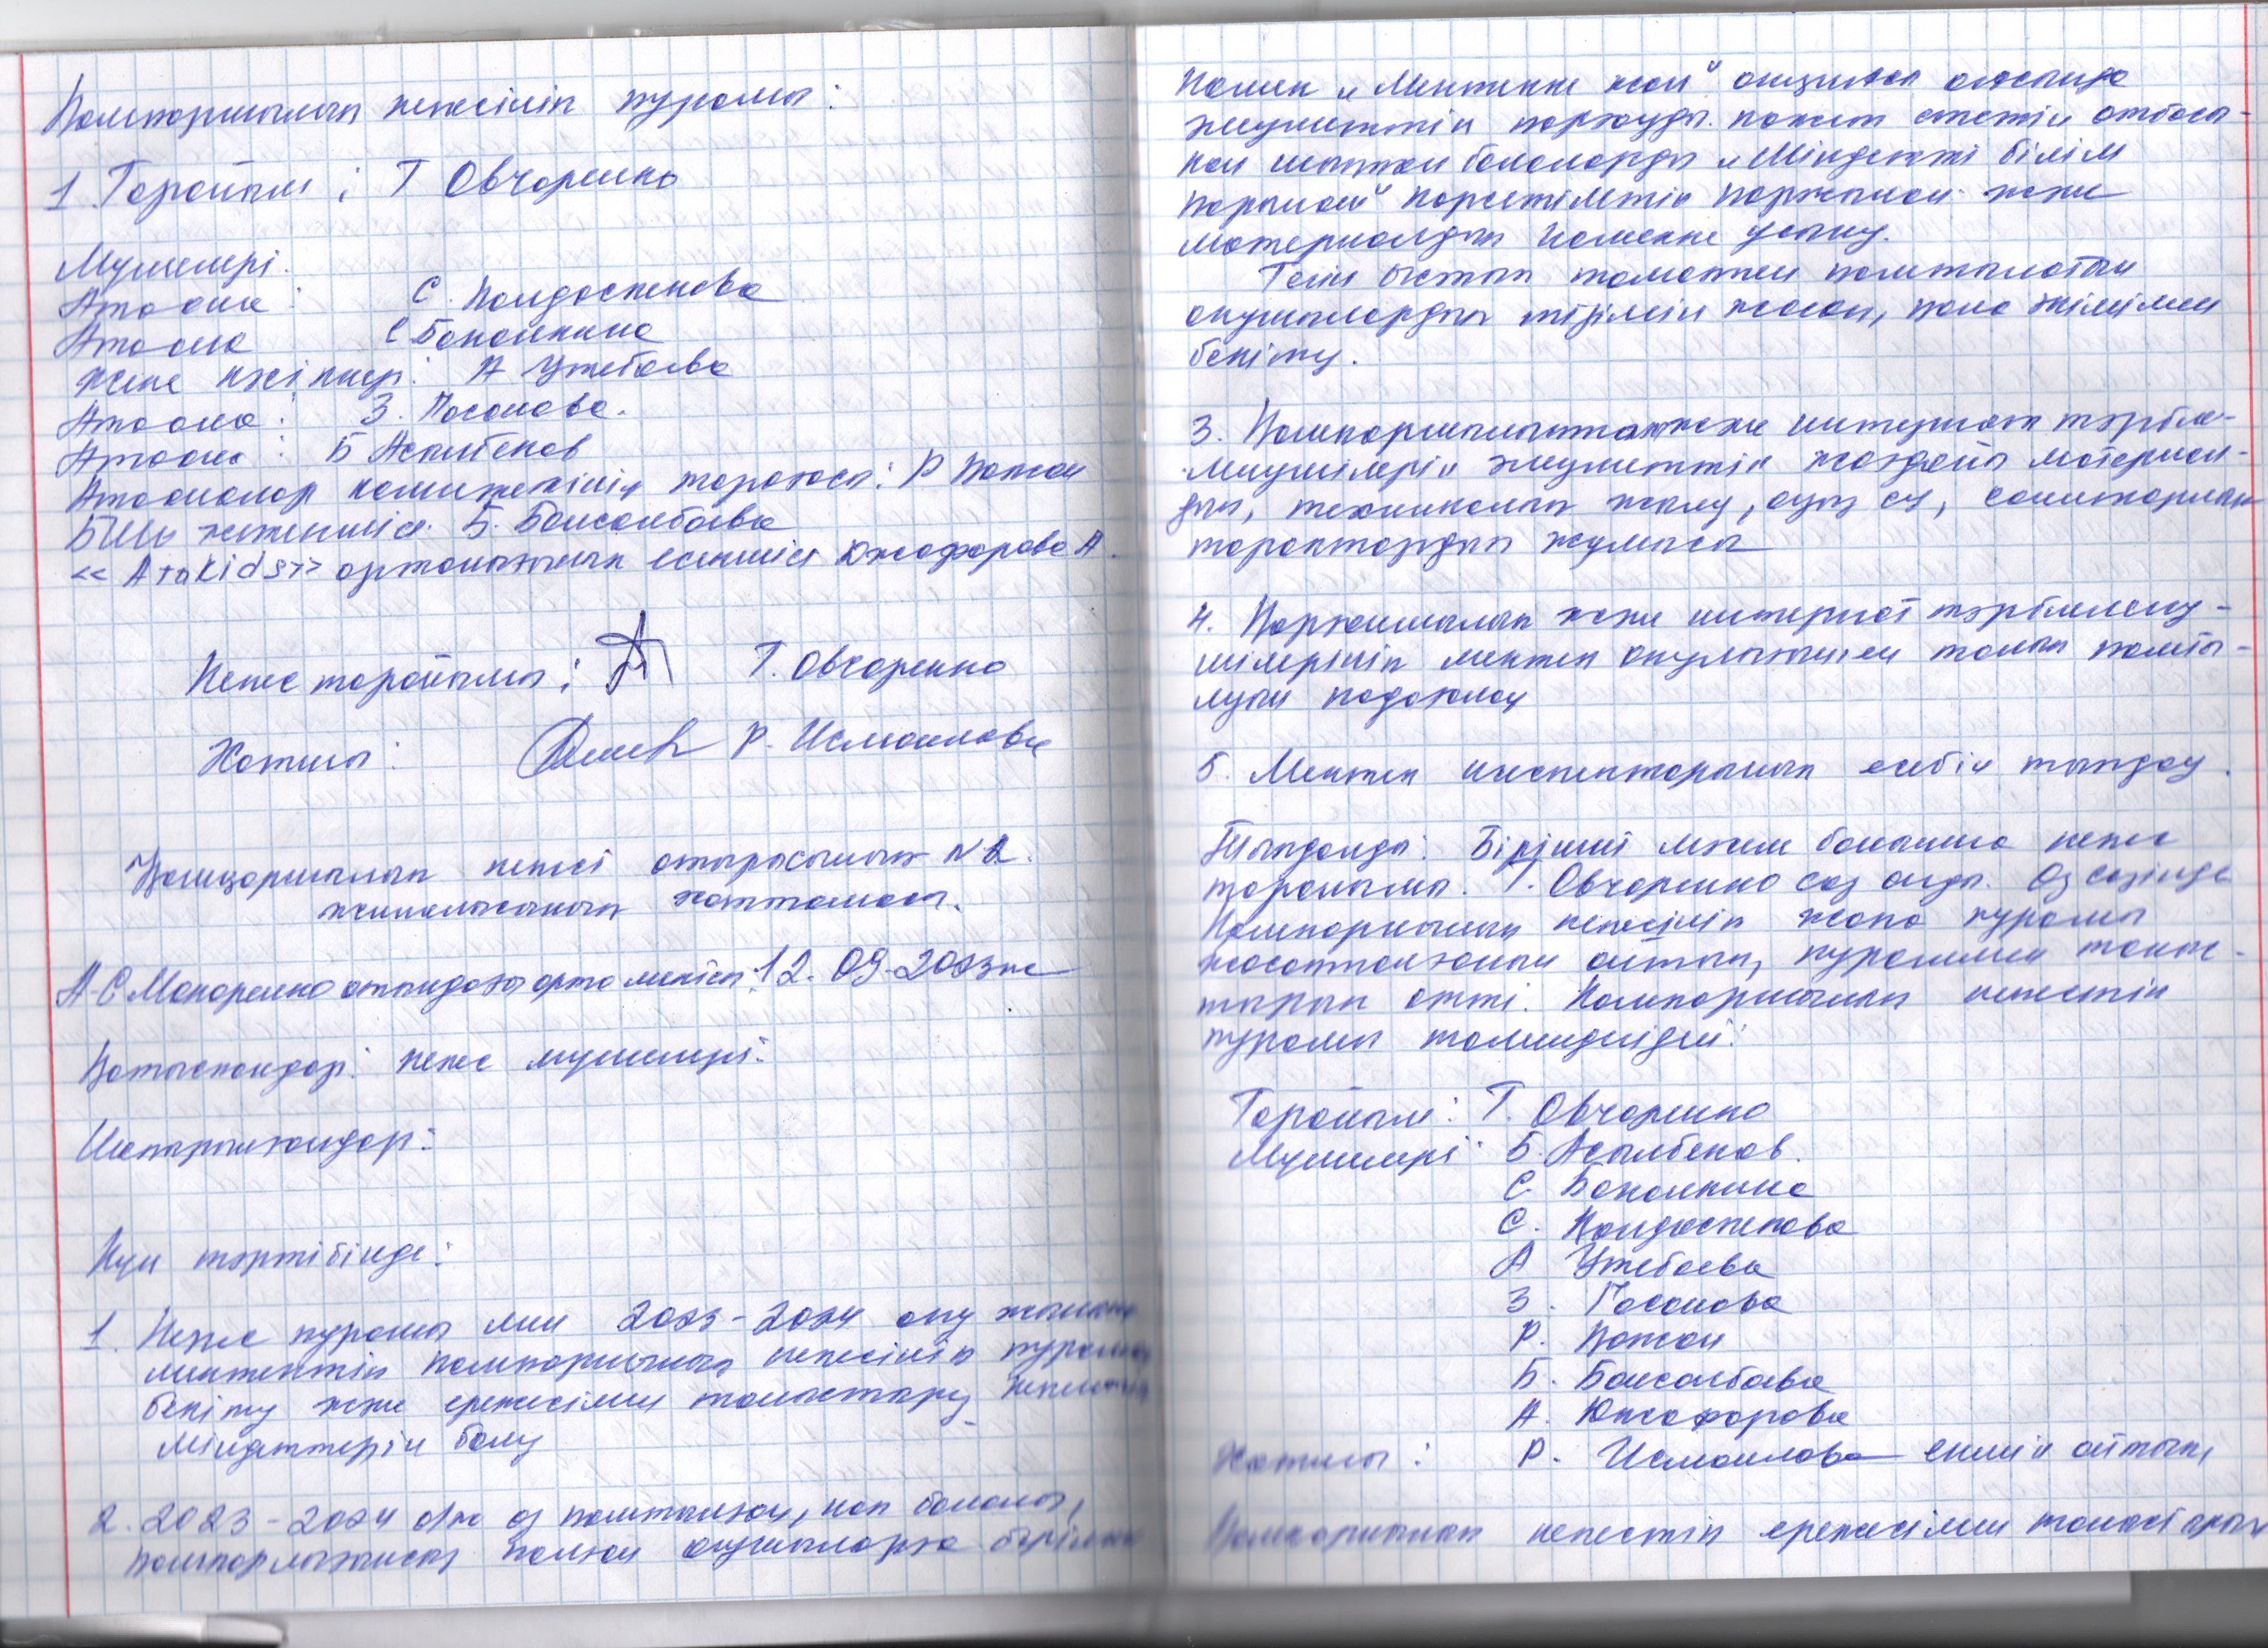 Қамқоршылық кеңесінің құрамы:
1. Төрайым: Т Овчаренко
Мүшелері.
Ата-ана: С. Қандоспекова
Ата-ана С Бакаинина
Жеке кәсіпкер: А Утебаева
Ата ана: З. Гасанова.
Ата ана: Б Асылбеков
Ата аналар комитетінің төрағасы: Р Қажан
БШЫ жетекшісі: Б. Баисалбаева
«AruKids» орталығының есепшісі Южафарова А.
Кеңес төрайымы: Т. Овчаренко
Хатшы: Р. Исмаилова
Қамқоршылық кеңесі отырысының №1.
жиналысының хаттамасы.
А.С Макаренко атындағы орта мектебі 12.09.2023ж
Қатысқандар: Кеңес мүшелері.
Шақырылғандар:
Күн тәртібінде:
1. Кеңес құрамы мен 2023-2024 оқу жылына
мектептің қамқоршылық кеңесінің құрамын
бекіту және ережесімен таныстыру,
міндеттерін бөлу
2. 2023-2024 о/ж аз қамтылған, көп балалы,
қамқорлығынсыз қалған оқушыларға берілетін
көмек „Мектепке жол" акциясы аясында
жұмыстың барысы. қажет ететін отбасы-
нан шыққан балаларды „Міндетті білім
қорының" көрсетілетін қаржылай және
материалдық көмекке ұсыну.
Тегін ыстық тамақпен қамтылатын
оқушылардың тізімін жасап, қала әкімімен
бекіту.
3. Қамқоршылықтағы және интернат тәрбие-
ленушілерін әлеуметтік жағдайы материал-
дық, техникалық жылу, ауыз су, санитарлық
тораптардың жұмысы
4. Қорғаншылық және интернат тәрбиелену-
шілерінің мектеп оқулығымен толық қамты-
луын қадағалау
5. Мектеп инспекторының есебін тыңдау.
Тыңдалды: Бірінші мәселе бойынша кеңес
төрайымы. Т. Овчаренко сөз алды. Өз сөзінде
Қамқоршылық кеңесінің жаңа құрамы
жасақталғанын айтып, құраммен таныс-
тырып өтті. Қамқоршылық кеңестің
құрамы төмендегідей:
Төрайым: Т. Овчаренко
Мүшелері: Б. Асылбеков.
С. Бакаинина
С. Қандоспекова
А Утебаева
З. Гасанова
Р. Қажан
Б. Баисалбаева
А. Южафарова
Хатшы: Р. Исмаилова екенін айтып,
Қамқоршылық кеңестің ережесімен таныстырып